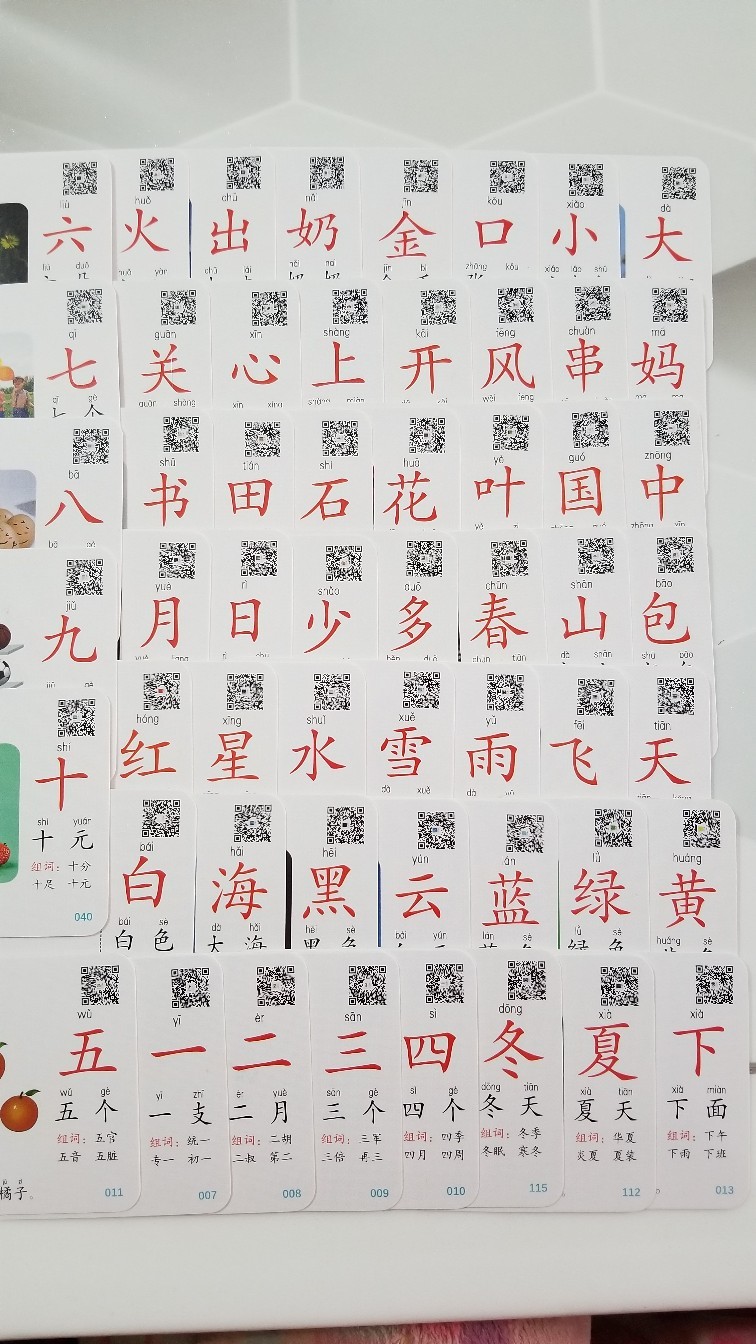 liù huǒ chū nǎi jīn kǒu xiǎo dà
六 火 出 奶 金 口 小 大
qī guān xīn shàng kāi fēng chuàn mā
七 关 心 上 开 风 串 妈
bā shū tián shí huā yè guó zhōng
八 书 田 石 花 叶 国 中
jiǔ yuè rì shǎo duō chūn shān bāo
九 月 日 少 多 春 山 包
shí hóng xīng shuǐ xuě yǔ fēi tiān
十 红 星 水 雪 雨 飞 天
shí yuán
十 元
组词: 十分
十足 十元
040
bái hǎi hēi yún lán lǜ huáng
白 海 黑 云 蓝 绿 黄
bái sè dà hǎi hēi sè lǜ sè huáng sè
白 色 大 海 黑 色 绿 色
wǔ yī èr sān sì dōng xià xià
五 一 二 三 四 冬 夏 下
wǔ gè yì zhī èr yuè sān gè sì gè dōng tiān xià tiān xià miàn
五 个 一 支 二 月 三 个 四 个 冬 天 夏 天 下 面
组词: 五官 组词: 统一 组词: 二胡 组词: 三军 组词: 四季 组词: 冬季 组词: 华夏 组词: 下午
五音 五脏 专一 初一 二叔 第二 三倍 再三 四月 四周 冬眠 寒冬 炎夏 夏装 下雨 下班
橘子。
011 007 008 009 010 115 112 013